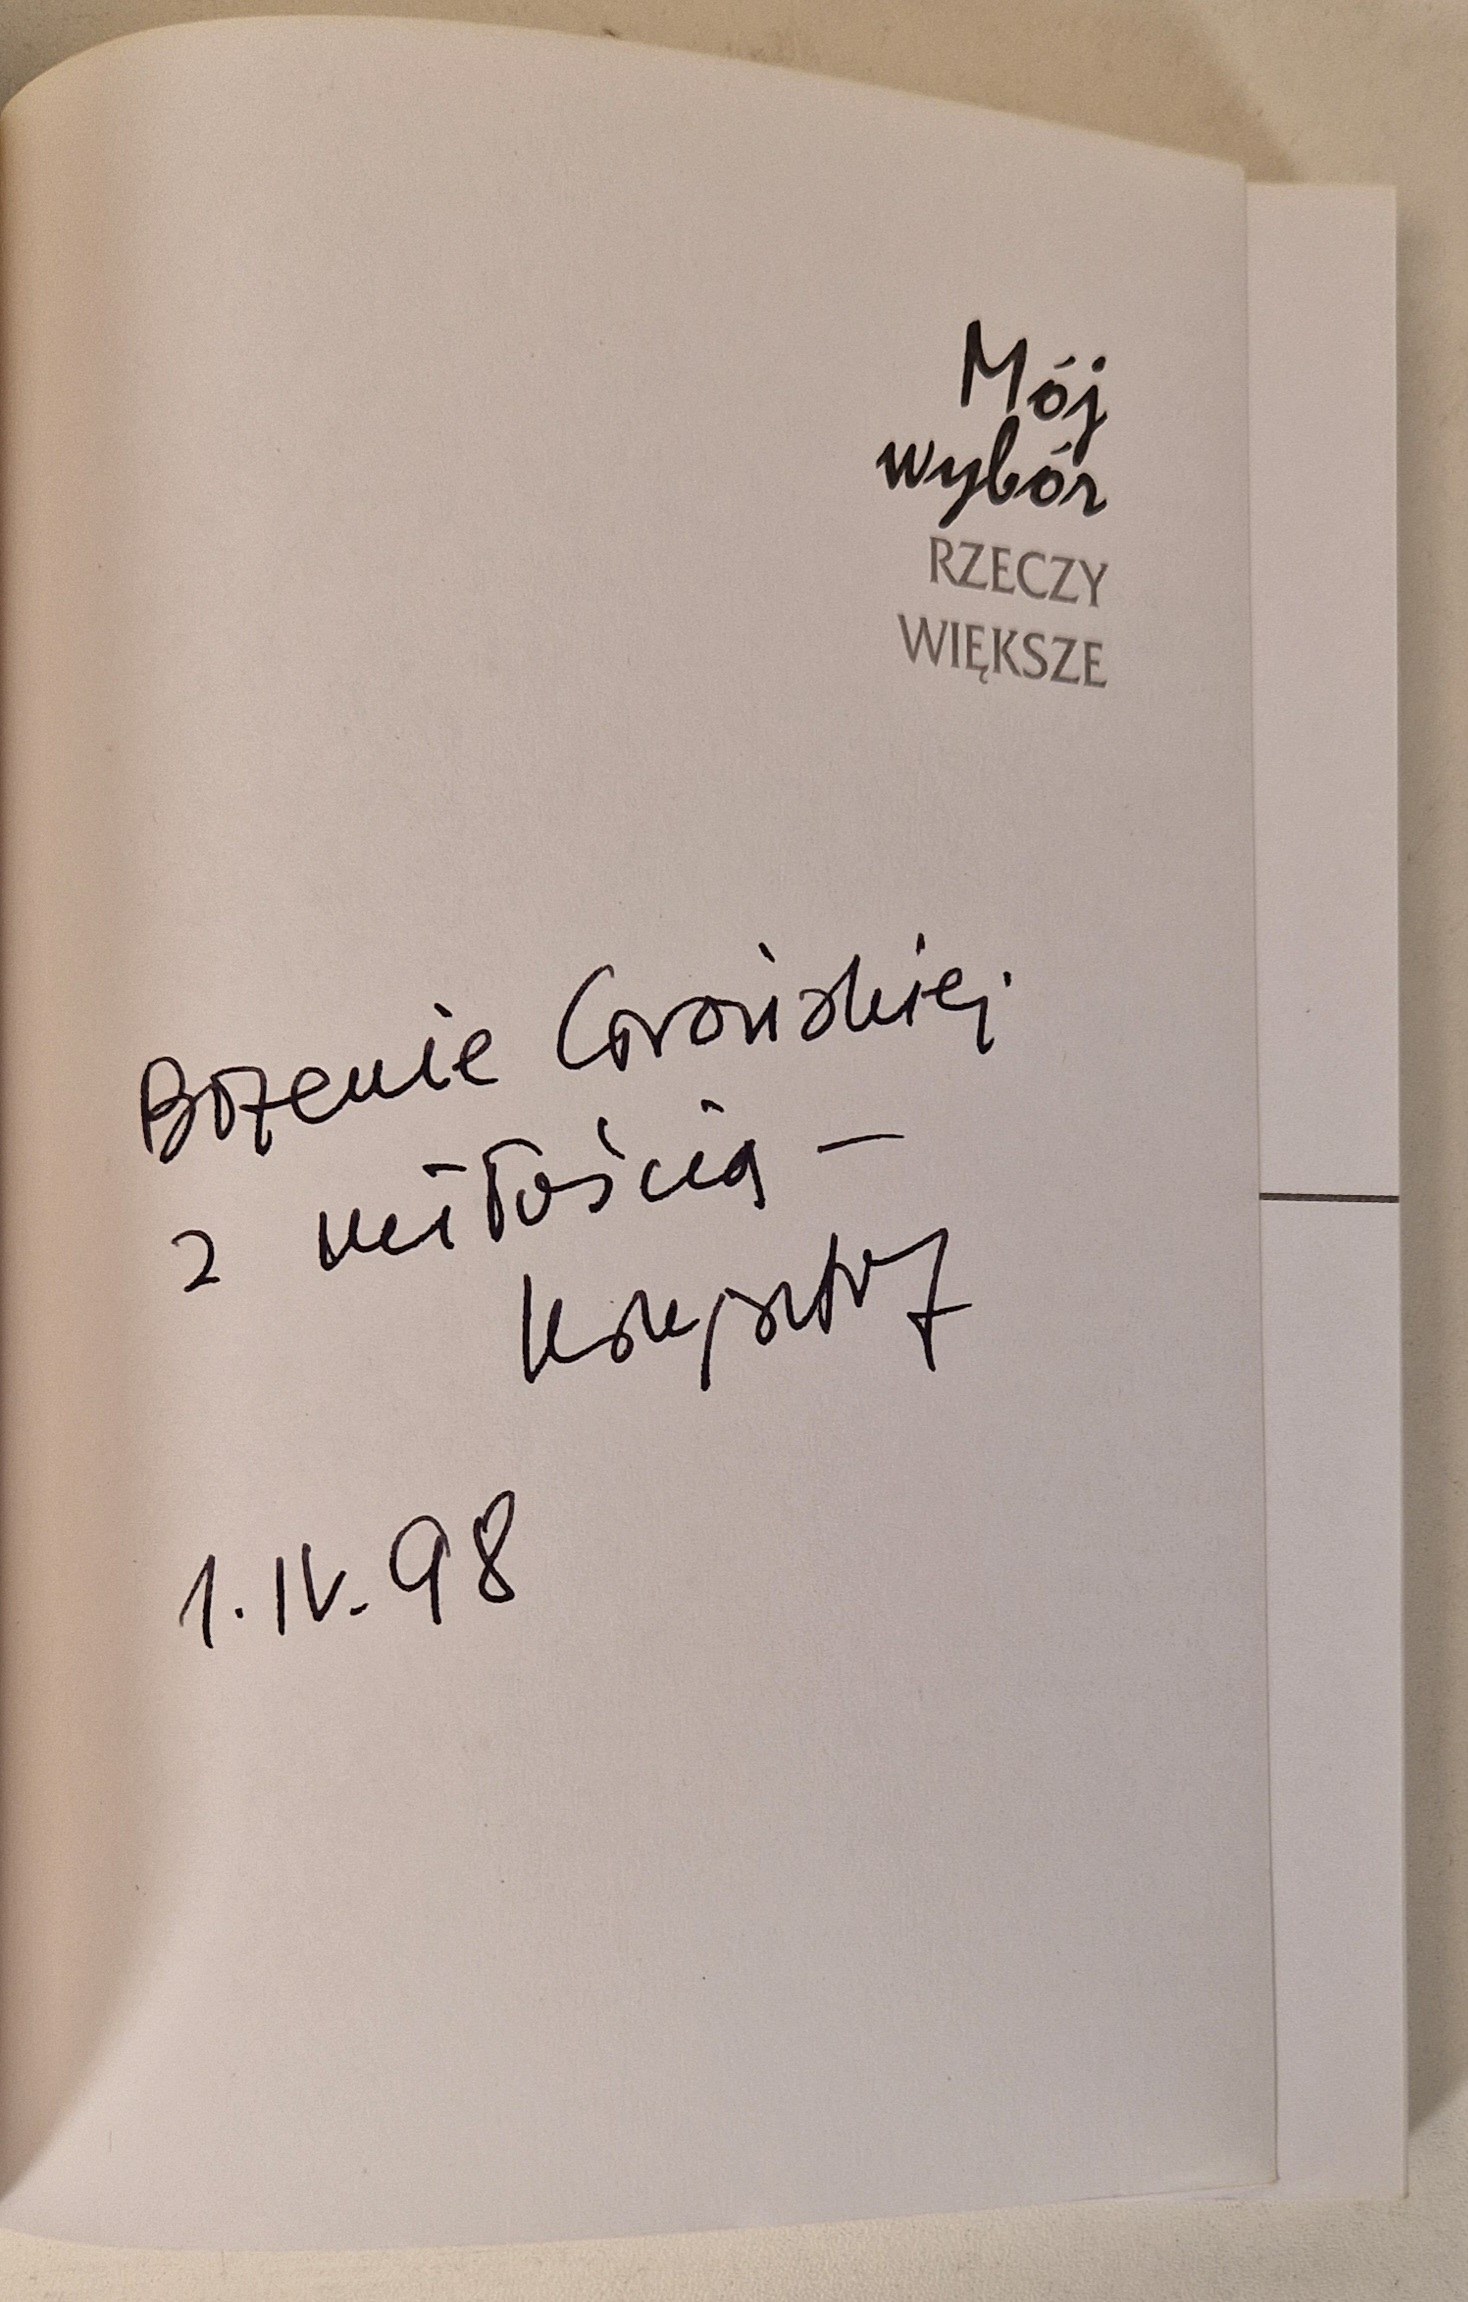 Mój
wybór
RZECZY
WIĘKSZE
Bożenie
z miłością –
Krzysztof
1.IV.98